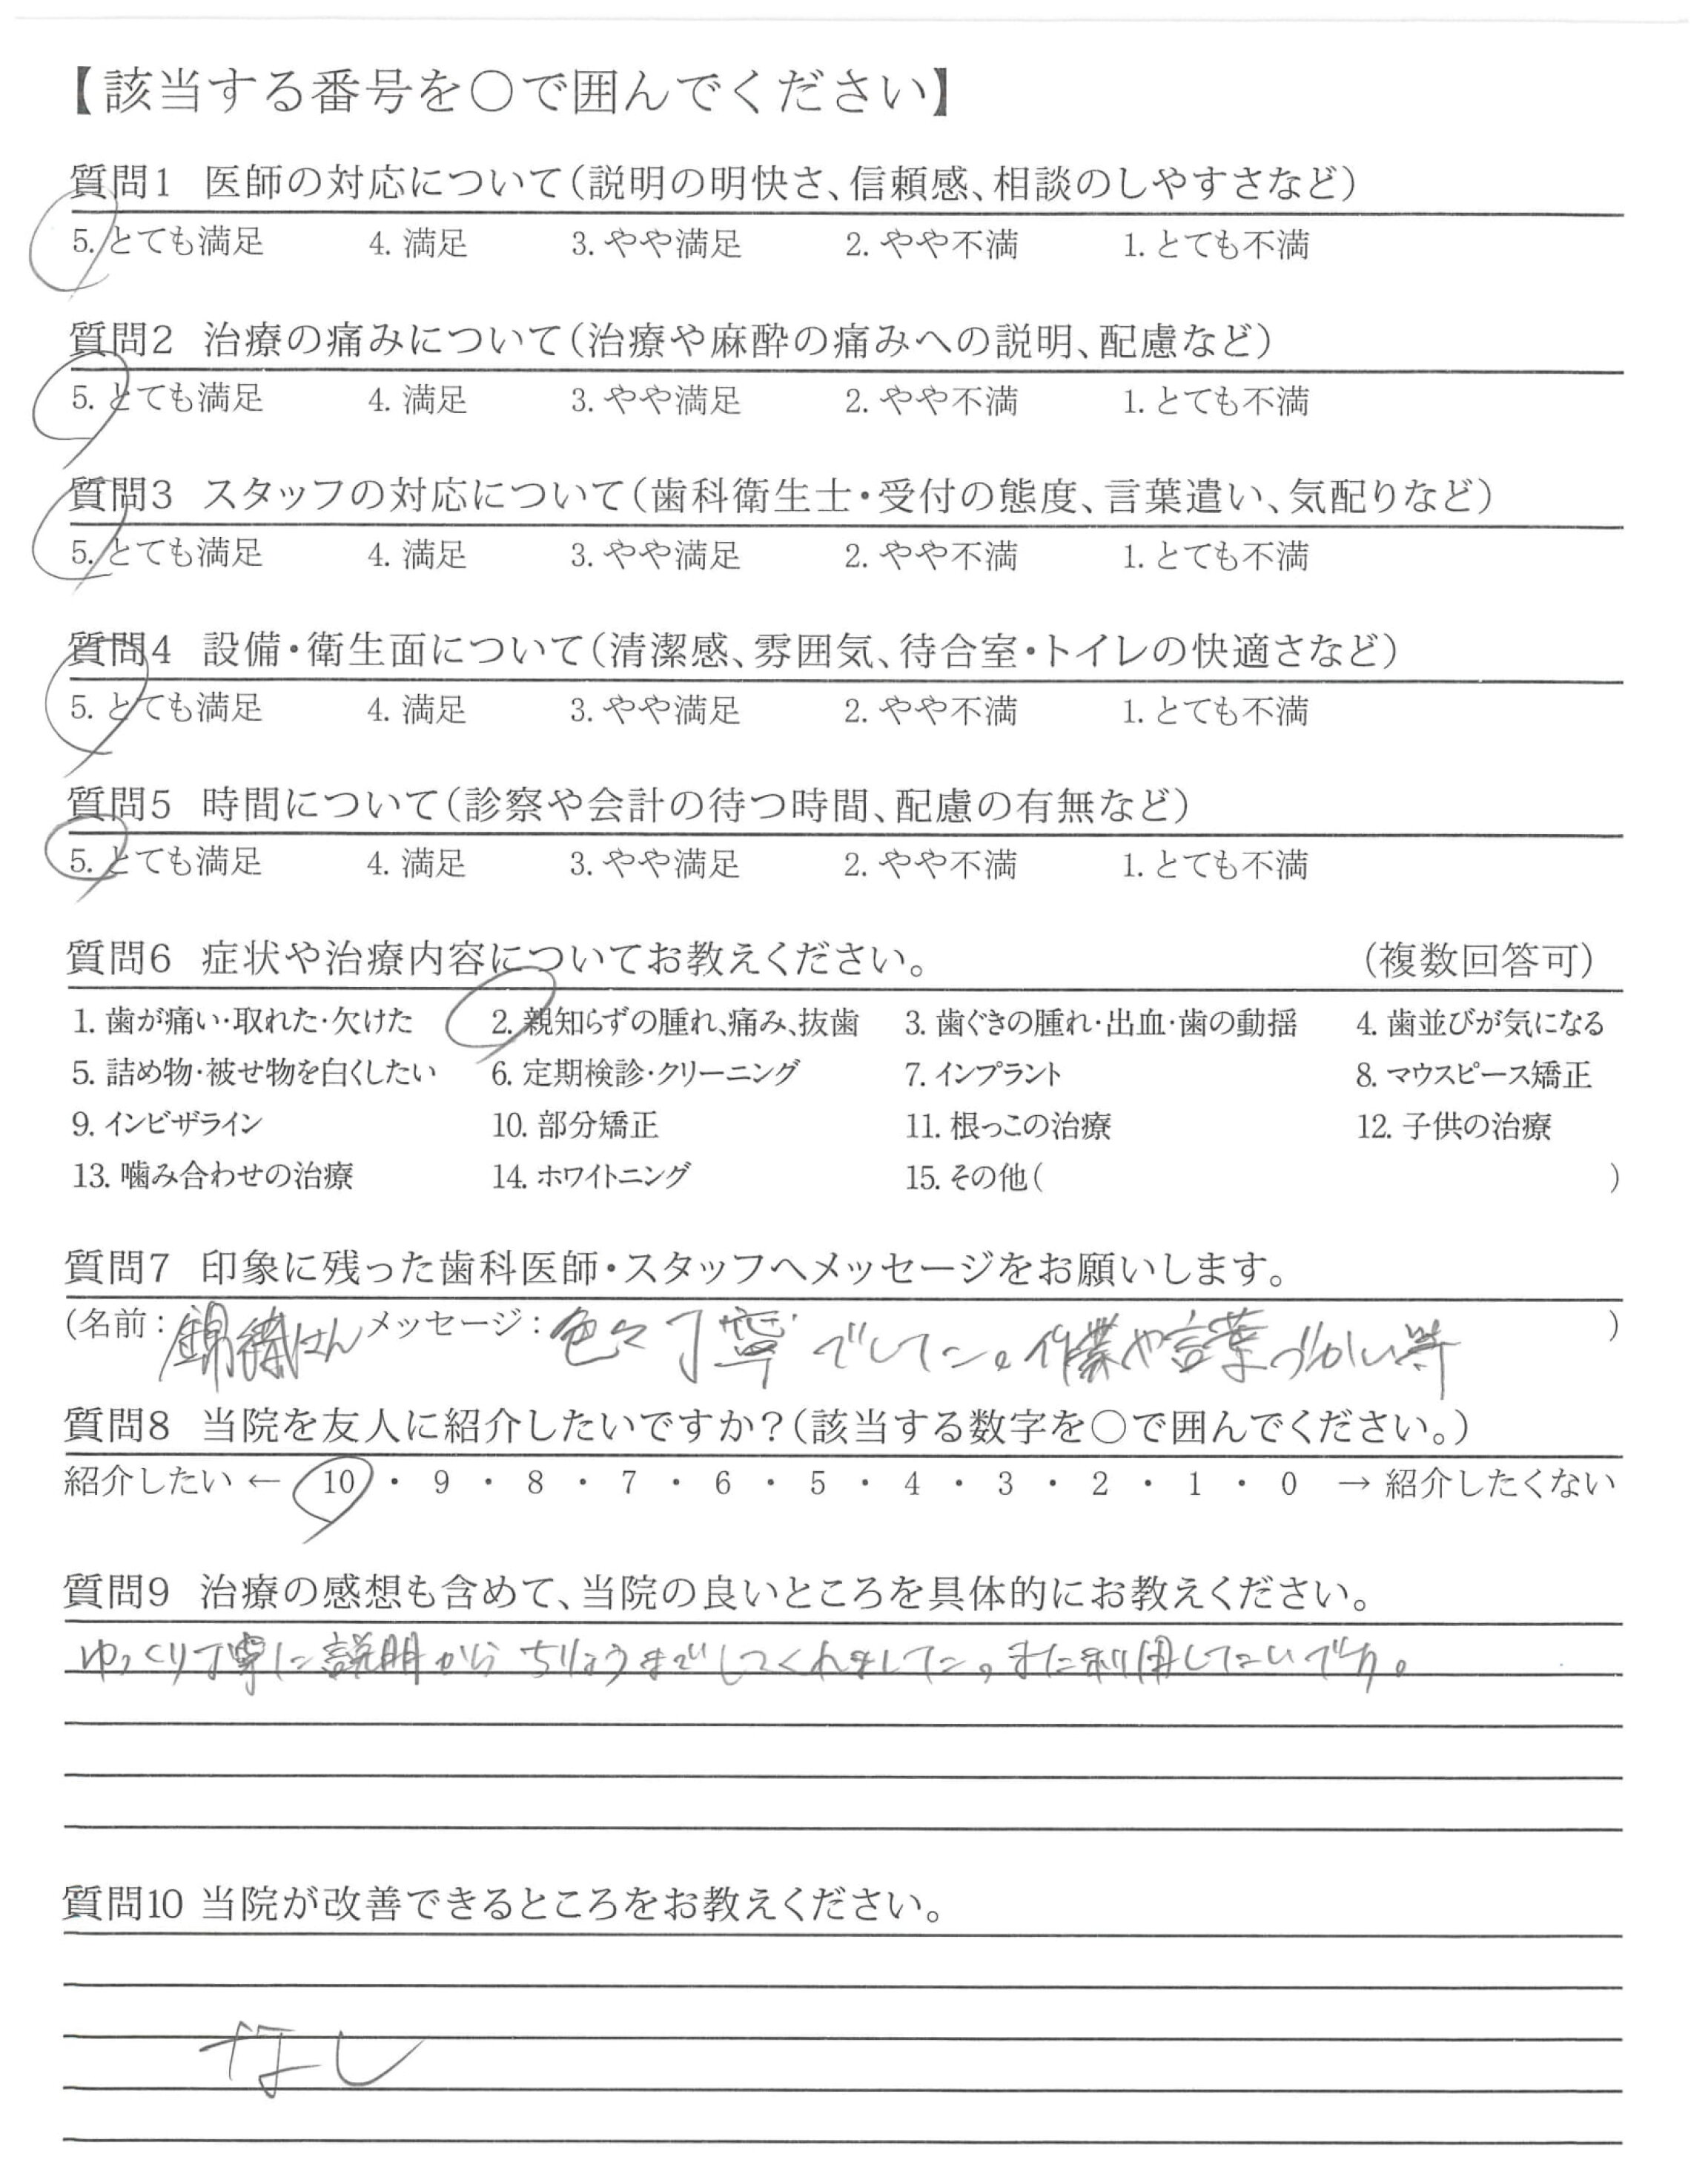 【該当する番号を○で囲んでください】
質問1 医師の対応について(説明の明快さ、信頼感、相談のしやすさなど)
5. とても満足 4. 満足 3. やや満足 2. やや不満 1. とても不満
質問2 治療の痛みについて(治療や麻酔の痛みへの説明、配慮など)
5. とても満足 4. 満足 3. やや満足 2. やや不満 1. とても不満
質問3 スタッフの対応について(歯科衛生士・受付の態度、言葉遣い、気配りなど)
5. とても満足 4. 満足 3. やや満足 2. やや不満 1. とても不満
質問4 設備・衛生面について(清潔感、雰囲気、待合室・トイレの快適さなど)
5. とても満足 4. 満足 3. やや満足 2. やや不満 1. とても不満
質問5 時間について(診察や会計の待つ時間、配慮の有無など)
5. とても満足 4. 満足 3. やや満足 2. やや不満 1. とても不満
質問6 症状や治療内容についてお教えください。 (複数回答可)
1. 歯が痛い・取れた・欠けた 2. 親知らずの腫れ、痛み、抜歯 3. 歯ぐきの腫れ・出血・歯の動揺 4. 歯並びが気になる
5. 詰め物・被せ物を白くしたい 6. 定期検診・クリーニング 7. インプラント 8. マウスピース矯正
9. インビザライン 10. 部分矯正 11. 根っこの治療 12. 子供の治療
13. 噛み合わせの治療 14. ホワイトニング 15. その他( )
質問7 印象に残った歯科医師・スタッフへメッセージをお願いします。
(名前: さん メッセージ: 色々丁寧でした。作業や言葉づかい等 )
質問8 当院を友人に紹介したいですか?(該当する数字を○で囲んでください。)
紹介したい ← 10 ・ 9 ・ 8 ・ 7 ・ 6 ・ 5 ・ 4 ・ 3 ・ 2 ・ 1 ・ 0 → 紹介したくない
質問9 治療の感想も含めて、当院の良いところを具体的にお教えください。
ゆっくり丁寧に説明からちりょうまでしてくれました。また利用したいです。
質問10 当院が改善できるところをお教えください。
なし